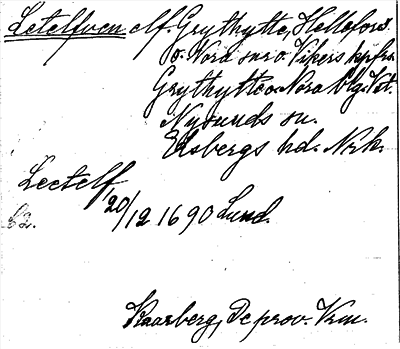 Letelfven elf. Grythytte, Hellefors
o. Nora snr o. Vikers kpfrs
Grythytte o. Nora blg. Vst.
Nysunds sn.
Edsbergs hd. Nrk.
Leetelf 20/12 1690 Lund.
Kaarberg, De prov. Vrm.